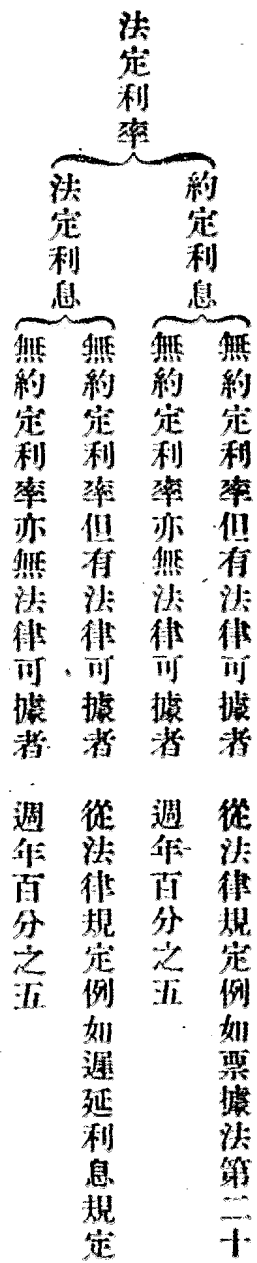 法定利率
約定利息
無約定利率但有法律可據者 從法律規定例如票據法第二十
無約定利率亦無法律可據者 週年百分之五
法定利息
無約定利率但有法律可據者 從法律規定例如遲延利息規定
無約定利率亦無法律可據者 週年百分之五